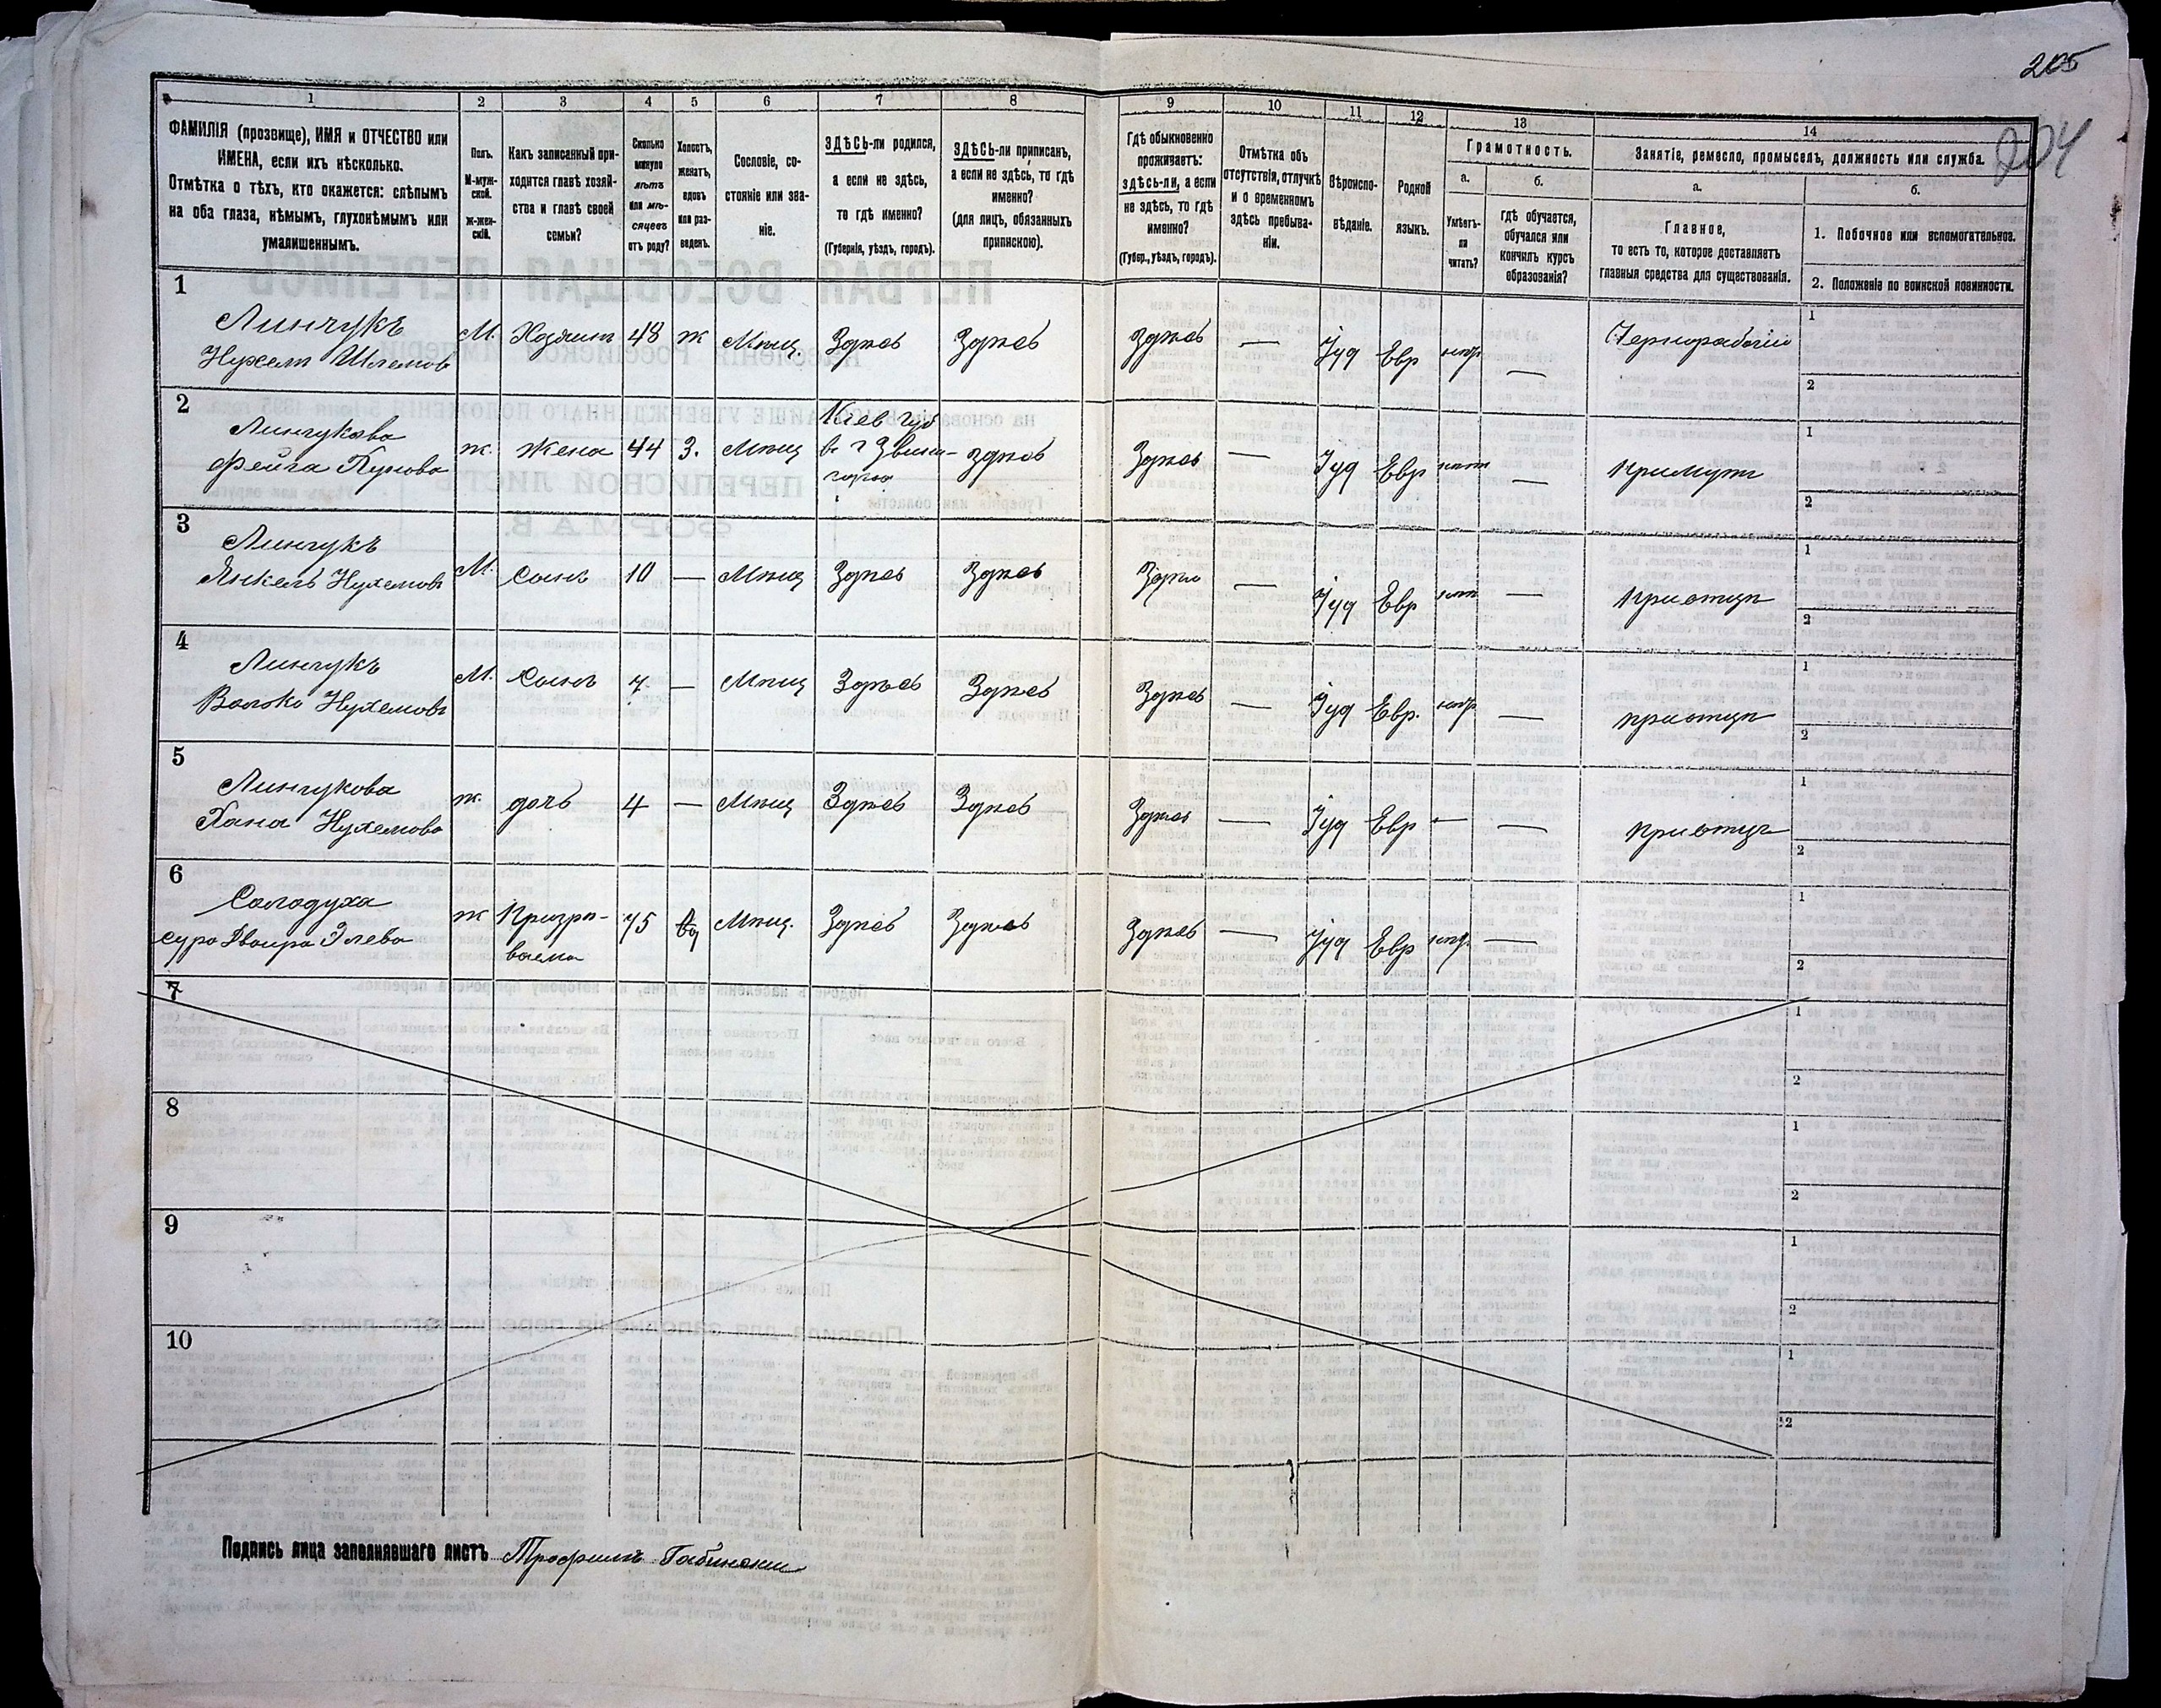 205
204
1 2 3 4 5 6 7 8 9 10 11 12 13 14
ФАМИЛІЯ (прозвище), ИМЯ и ОТЧЕСТВО или
ИМЕНА, если ихъ нѣсколько.
Отмѣтка о тѣхъ, кто окажется: слѣпымъ
на оба глаза, нѣмымъ, глухонѣмымъ или
умалишеннымъ.
Полъ.
М-муж-
ской.
ж-жен-
скій.
Какъ записанный при-
ходится главѣ хозяй-
ства и главѣ своей
семьи?
Сколько
минуло
лѣтъ
или мѣ-
сяцевъ
отъ роду?
Холостъ,
женатъ,
вдовъ
или раз-
веденъ.
Сословіе, со-
стояніе или зва-
ніе.
ЗДѢСЬ-ли родился,
а если не здѣсь,
то гдѣ именно?
(Губернія, уѣздъ, городъ).
ЗДѢСЬ-ли приписанъ,
а если не здѣсь, то гдѣ
именно?
(для лицъ, обязанныхъ
припискою).
Гдѣ обыкновенно
проживаетъ:
здѣсь-ли, а если
не здѣсь, то гдѣ
именно?
(Губер., уѣздъ, городъ).
Отмѣтка объ
отсутствіи, отлучкѣ
и о временномъ
здѣсь пребыва-
ніи.
Вѣроиспо-
вѣданіе.
Родной
языкъ.
Грамотность.
а.
Умѣетъ-
ли
читать?
б.
гдѣ обучается,
обучался или
кончилъ курсъ
образованія?
Занятіе, ремесло, промыселъ, должность или служба.
а.
Главное,
то есть то, которое доставляетъ
главныя средства для существованія.
б.
1. Побочное или вспомогательное.
2. Положеніе по воинской повинности.
1
Линчукъ
Нухемъ Шлемовъ
М. Хозяинъ 48 ж Мѣщ. Здѣсь Здѣсь Здѣсь — Іуд Евр — Чернорабочій
1
2
2
Линчукова
Фейга
ж. Жена 44 З. Мѣщ
Кіев Губ
в г Звени-
город
здѣсь Здѣсь — Іуд Евр — при мужѣ
1
2
3
Линчукъ
Янкель Нухемовъ
М. Сынъ 10 — Мѣщ Здѣсь Здѣсь Здѣсь — Іуд Евр — при отцѣ
1
2
4
Линчукъ
Волько Нухемовъ
М. Сынъ 7 — Мѣщ Здѣсь Здѣсь Здѣсь — Іуд Евр. — при отцѣ
1
2
5
Линчукова
Хана Нухемова
ж. дочь 4 — Мѣщ Здѣсь Здѣсь Здѣсь — Іуд Евр — — при отцѣ
1
2
6
Солодуха
Сура Двойра
ж 75 вд Мѣщ. Здѣсь Здѣсь Здѣсь — Іуд Евр —
1
2
7
1
2
8
1
2
9
1
2
10
1
2
Подпись лица заполнявшаго листъ Трофимъ